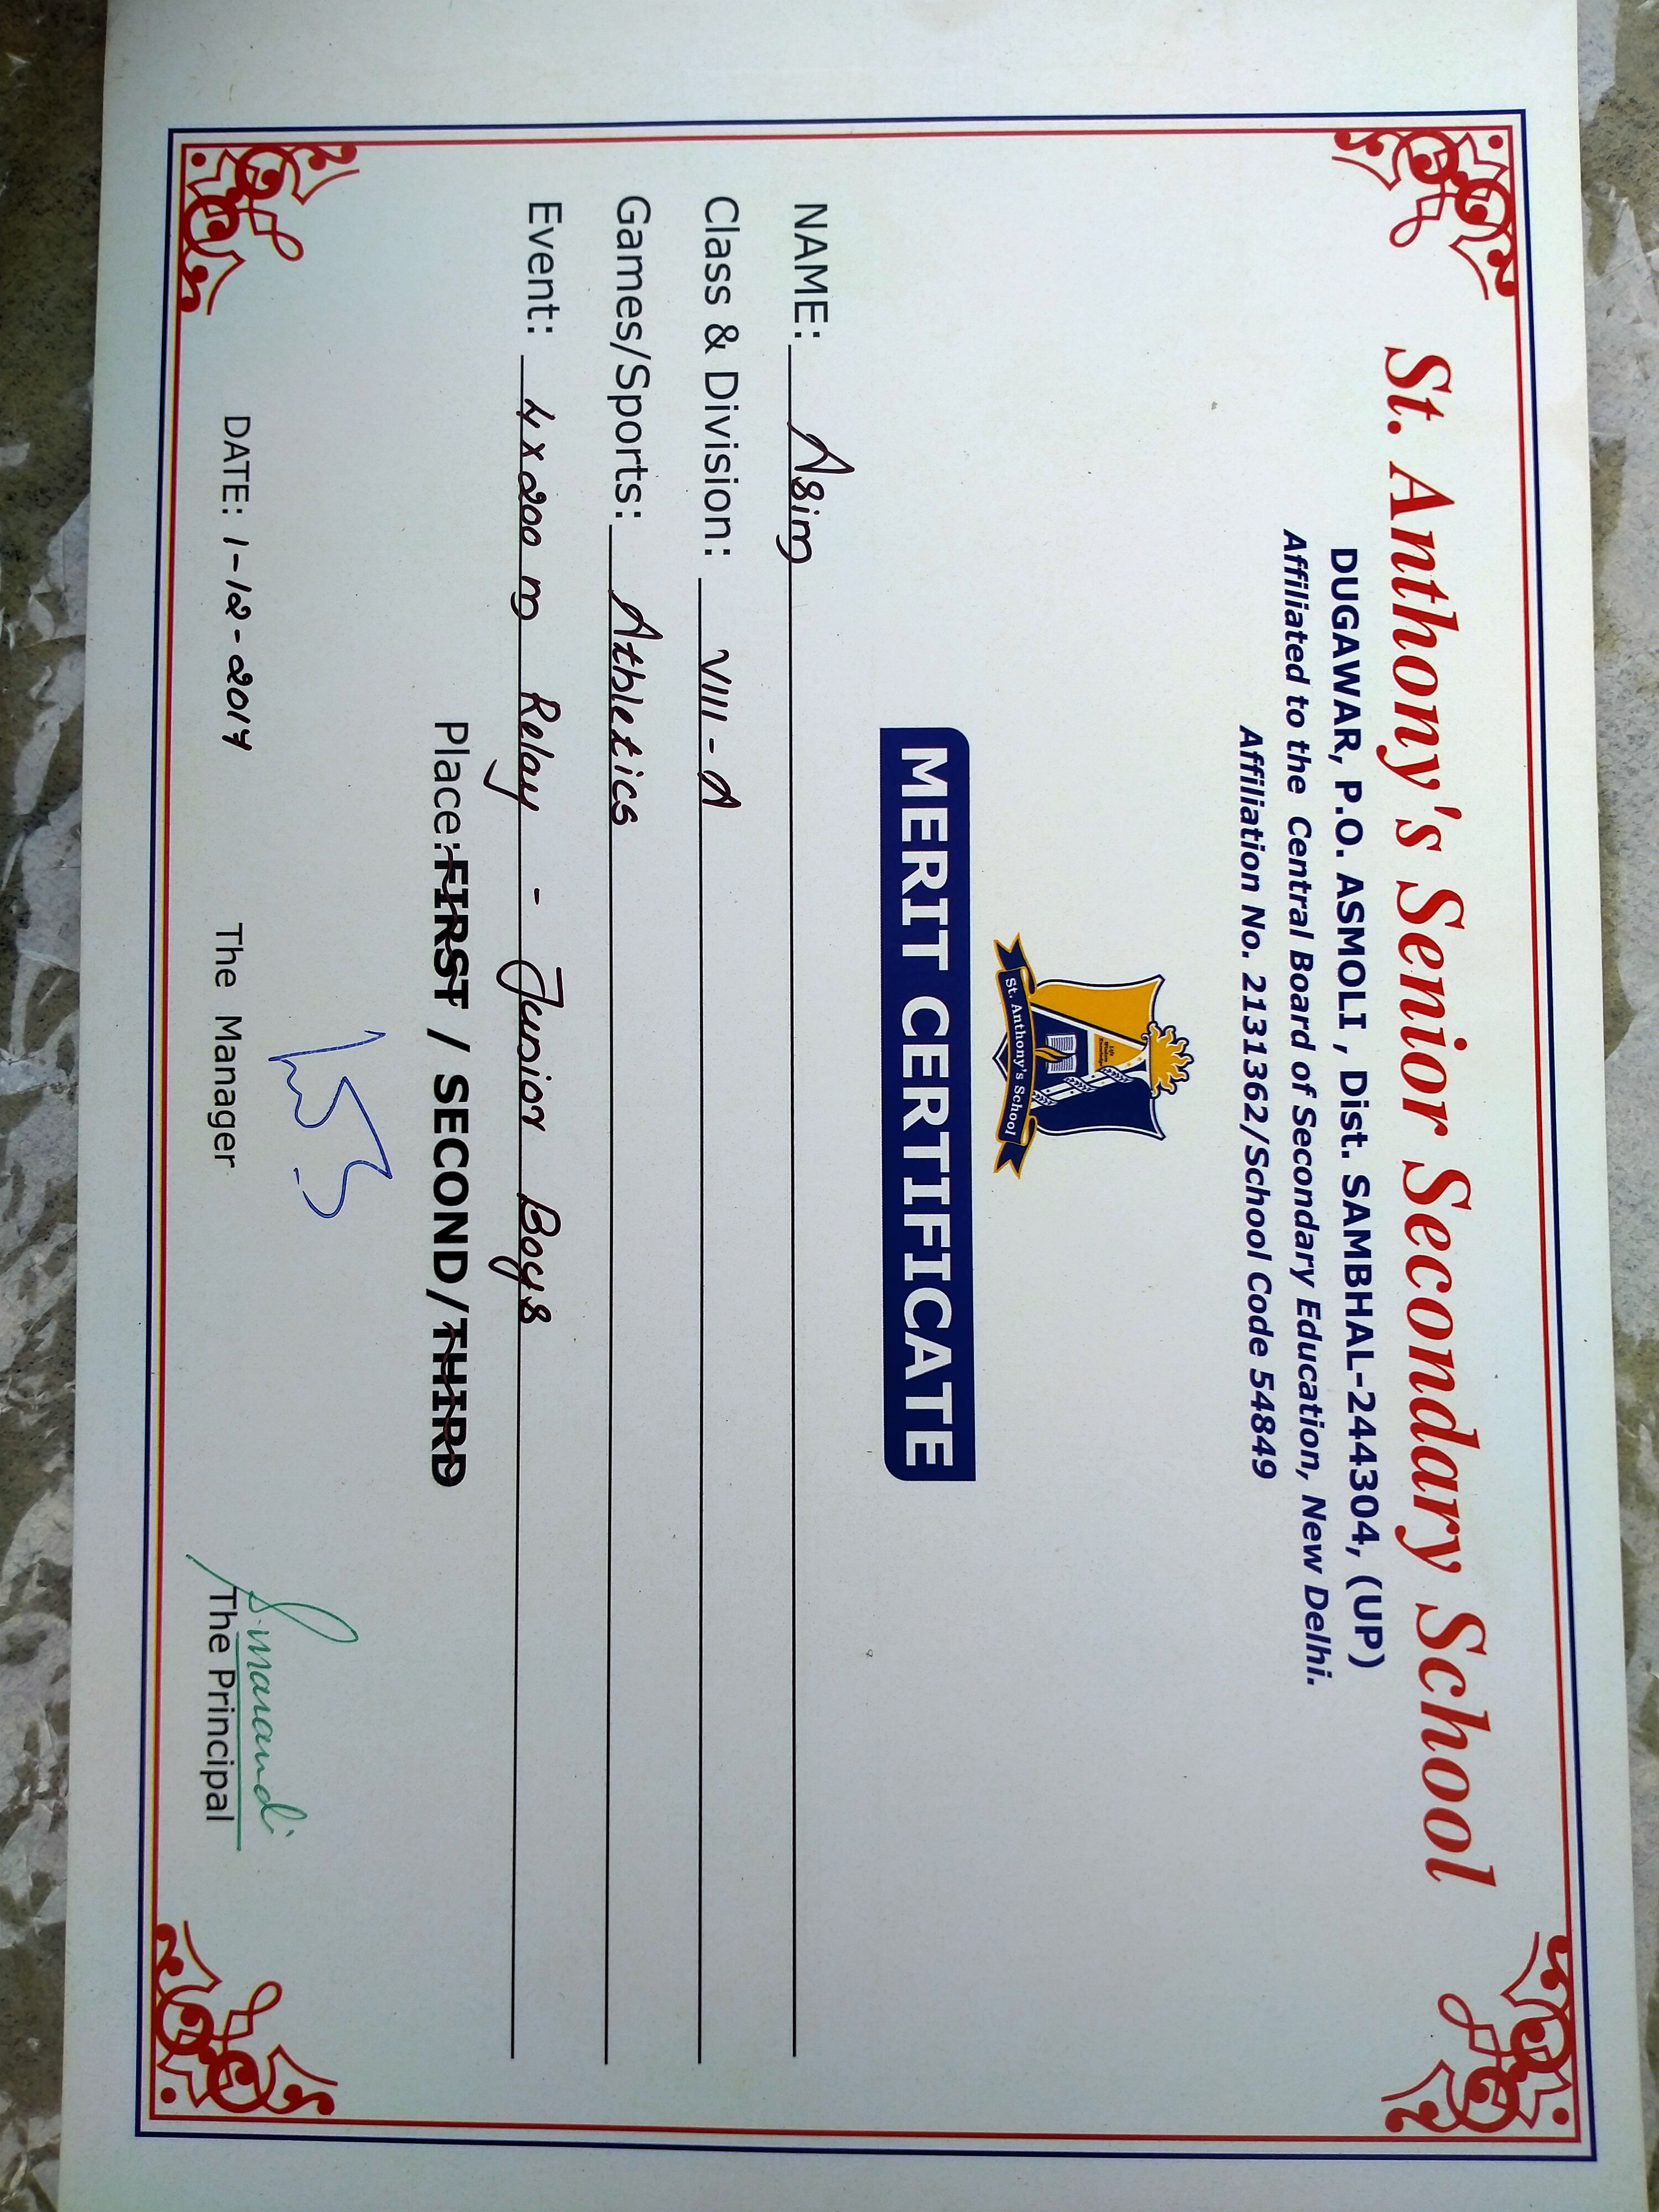 St. Anthony's Senior Secondary School
DUGAWAR, P.O. ASMOLI , Dist. SAMBHAL-244304, (UP)
Affiliated to the Central Board of Secondary Education, New Delhi.
Affiliation No. 2131362/School Code 54849
Life
Wisdom
Knowledge
St. Anthony's School
MERIT CERTIFICATE
NAME: Asim
Class & Division: VIII - A
Games/Sports: Athletics
Event: 4 x 200 m Relay - Junior Boys
Place: FIRST / SECOND/THIRD
S. Marandi
DATE: 1-12-2017 The Manager The Principal